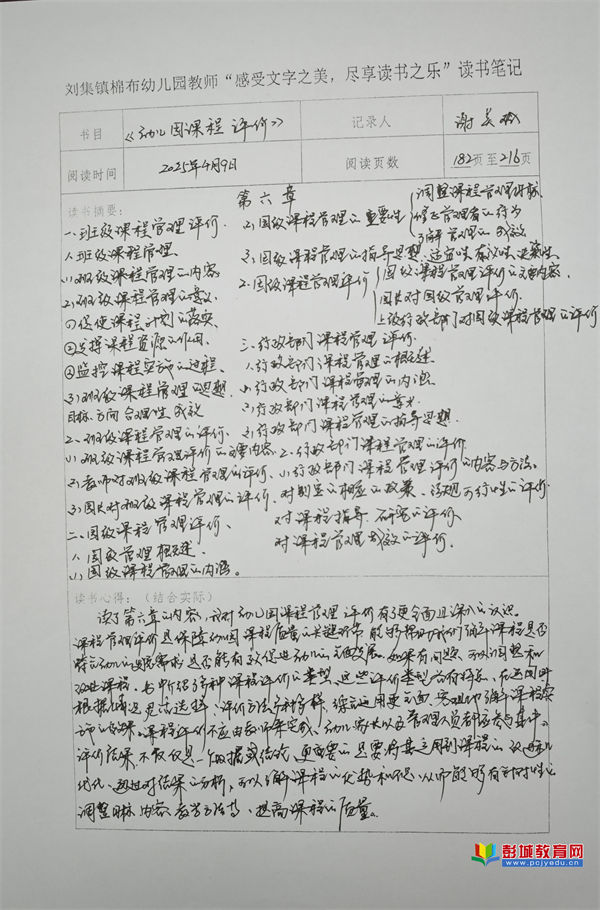 刘集镇棉布幼儿园教师“感受文字之美，尽享读书之乐”读书笔记
书目 《幼儿园课程评价》 记录人 谢美
阅读时间 2025年4月9日 阅读页数 182页至216页
读书摘要：
第六章
一、班级课程管理评价.
1.班级课程管理
(1)班级课程管理的内容
(2)班级课程管理的意义
①促使课程计划的落实
②发挥课程资源的作用
③监控课程实施的过程
(3)班级课程管理的思想
目标、方向 合理性 成效
2.班级课程管理的评价.
(1)班级课程管理评价的主要内容
(2)教师对班级课程管理的评价.
(3)园长对班级课程管理的评价.
二、园级课程管理评价、
1.园级管理概述.
(1)园级课程管理的内涵。
(2)园级课程管理的重要性
调整课程管理
管理者的行为
了解管理的成效
(3)园级课程管理的指导思想.
2.园级课程管理评价
园级课程管理评价的主要内容.
园长对园级管理评价.
上级行政部门对园级课程管理的评价
三、行政部门课程管理评价.
1.行政部门课程管理的概述
(1)行政部门课程管理的内涵
(2)行政部门课程管理的意义
(3)行政部门课程管理的指导思想.
2.行政部门课程管理的评价
(1)行政部门课程管理评价的内容与方法。
对制定的相应的政策、法规可行性的评价
对课程指导 研究的评价
对课程管理成效的评价.
读书心得：（结合实际）
读了第六章的内容，我对幼儿园课程管理评价有了更全面且深入的认识。
课程管理评价是保障幼儿园课程质量的关键环节 能够帮助我们了解课程是否
符合幼儿的发展需求 是否能有效促进幼儿的全面发展。如果有问题，可以调整和
改进课程。书中介绍了多种课程评价的类型、这些评价类型各有特点、在运用时
根据情况灵活选择、评价方法多种多样，综合运用更全面、客观地了解课程实
施的效果。课程评价不应由教师来完成、幼儿家长以及管理人员都应参与其中。
评价结果，不仅仅是一个数据或结论，更重要的是要将其运用到课程的改进和
优化、通过对结果的分析，可以了解课程的优势和不足，从而能够有针对性的
调整目标、内容、教学方法等、提高课程的质量。
彭城教育网
www.pcjyedu.cn